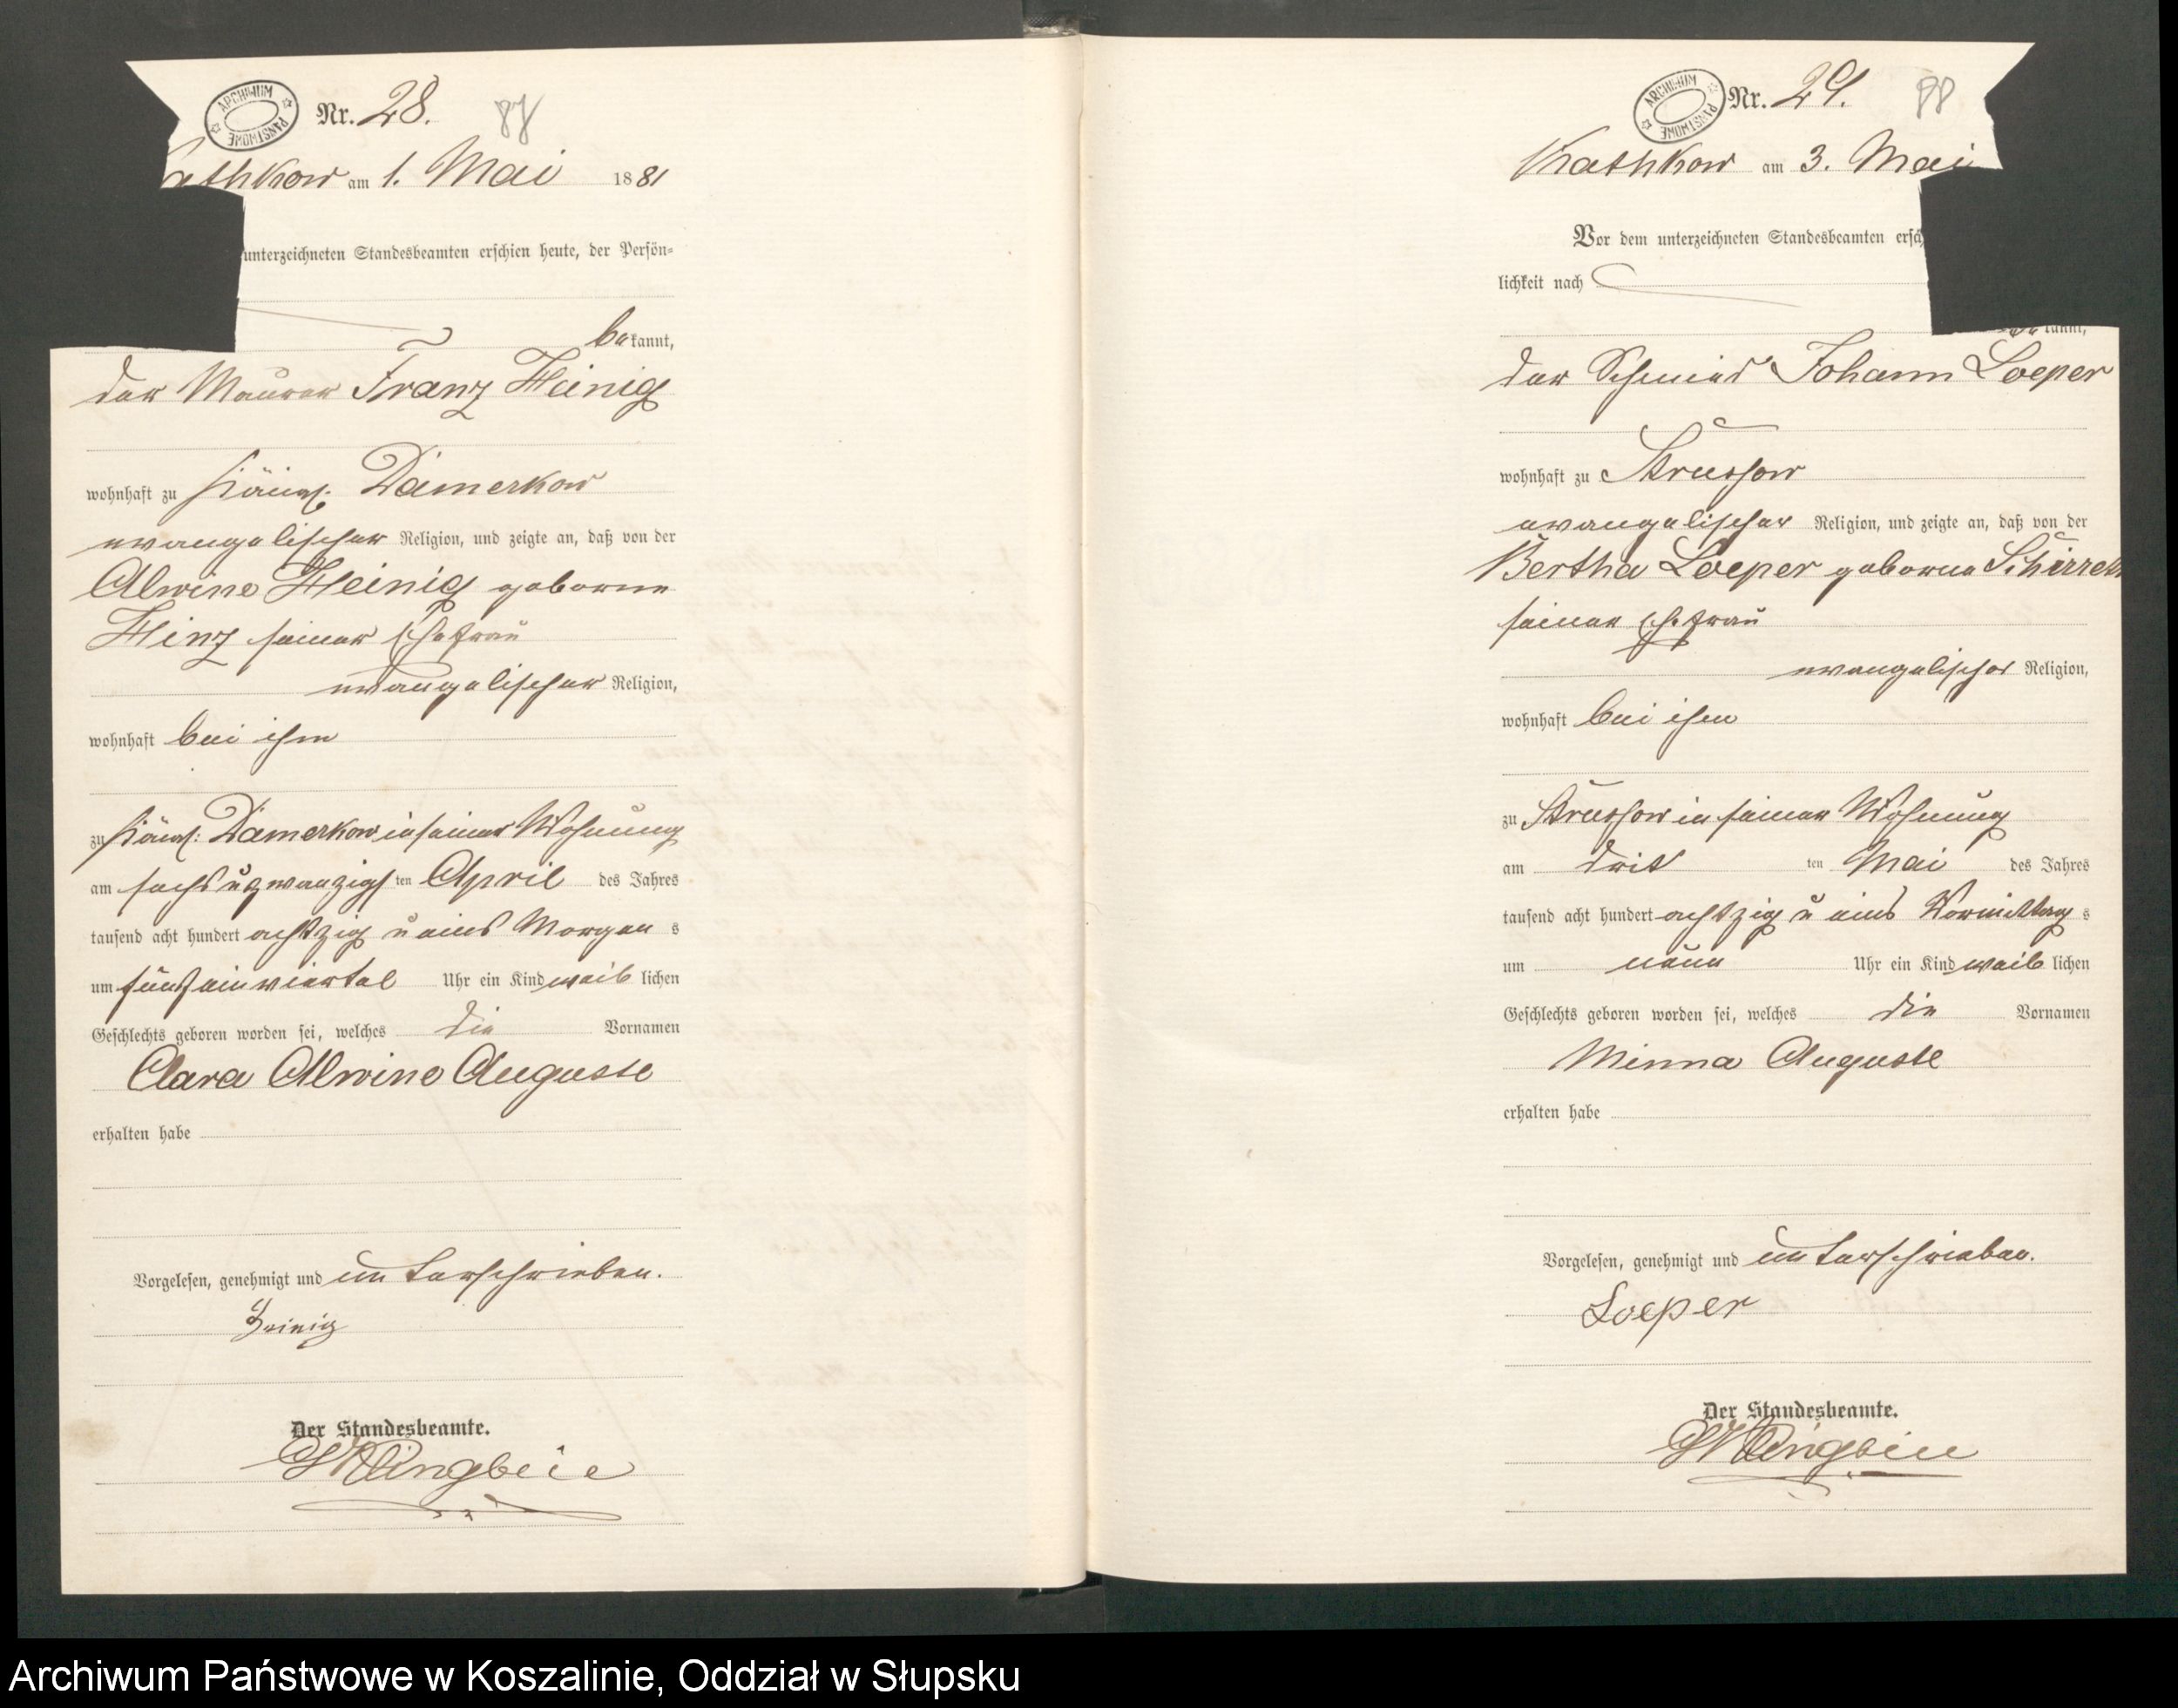 ARCHIWUM PAŃSTWOWE
Nr. 28.
87
athkow am 1. Mai 1881
unterzeichneten Standesbeamten erschien heute, der Persön-
bekannt,
der Maurer Franz Heinig
wohnhaft zu Königl. Damerkow
evangelischer Religion, und zeigte an, daß von der
Alwine Heinig geborne
Hinz seiner Ehefrau
evangelischer Religion,
wohnhaft bei ihm
zu Königl: Damerkow in seiner Wohnung
am sechs u zwanzigsten April des Jahres
tausend acht hundert achtzig u eins Morgens
um fünf ein viertel Uhr ein Kind weiblichen
Geschlechts geboren worden sei, welches die Vornamen
Clara Alwine Auguste
erhalten habe
Vorgelesen, genehmigt und unterschrieben.
Heinig
Der Standesbeamte.
Klingbeil
ARCHIWUM PAŃSTWOWE
Nr. 29.
88
Kathkow am 3. Mai
Vor dem unterzeichneten Standesbeamten ersch
lichkeit nach
kannt,
der Schmied Johann Loeper
wohnhaft zu Strussow
evangelischer Religion, und zeigte an, daß von der
Bertha Loeper geborne
seiner Ehefrau
evangelischer Religion,
wohnhaft bei ihm
zu Strussow in seiner Wohnung
am dritten Mai des Jahres
tausend acht hundert achtzig u eins Vormittags
um neun Uhr ein Kind weiblichen
Geschlechts geboren worden sei, welches die Vornamen
Minna Auguste
erhalten habe
Vorgelesen, genehmigt und unterschrieben.
Loeper
Der Standesbeamte.
Klingbeil
Archiwum Państwowe w Koszalinie, Oddział w Słupsku